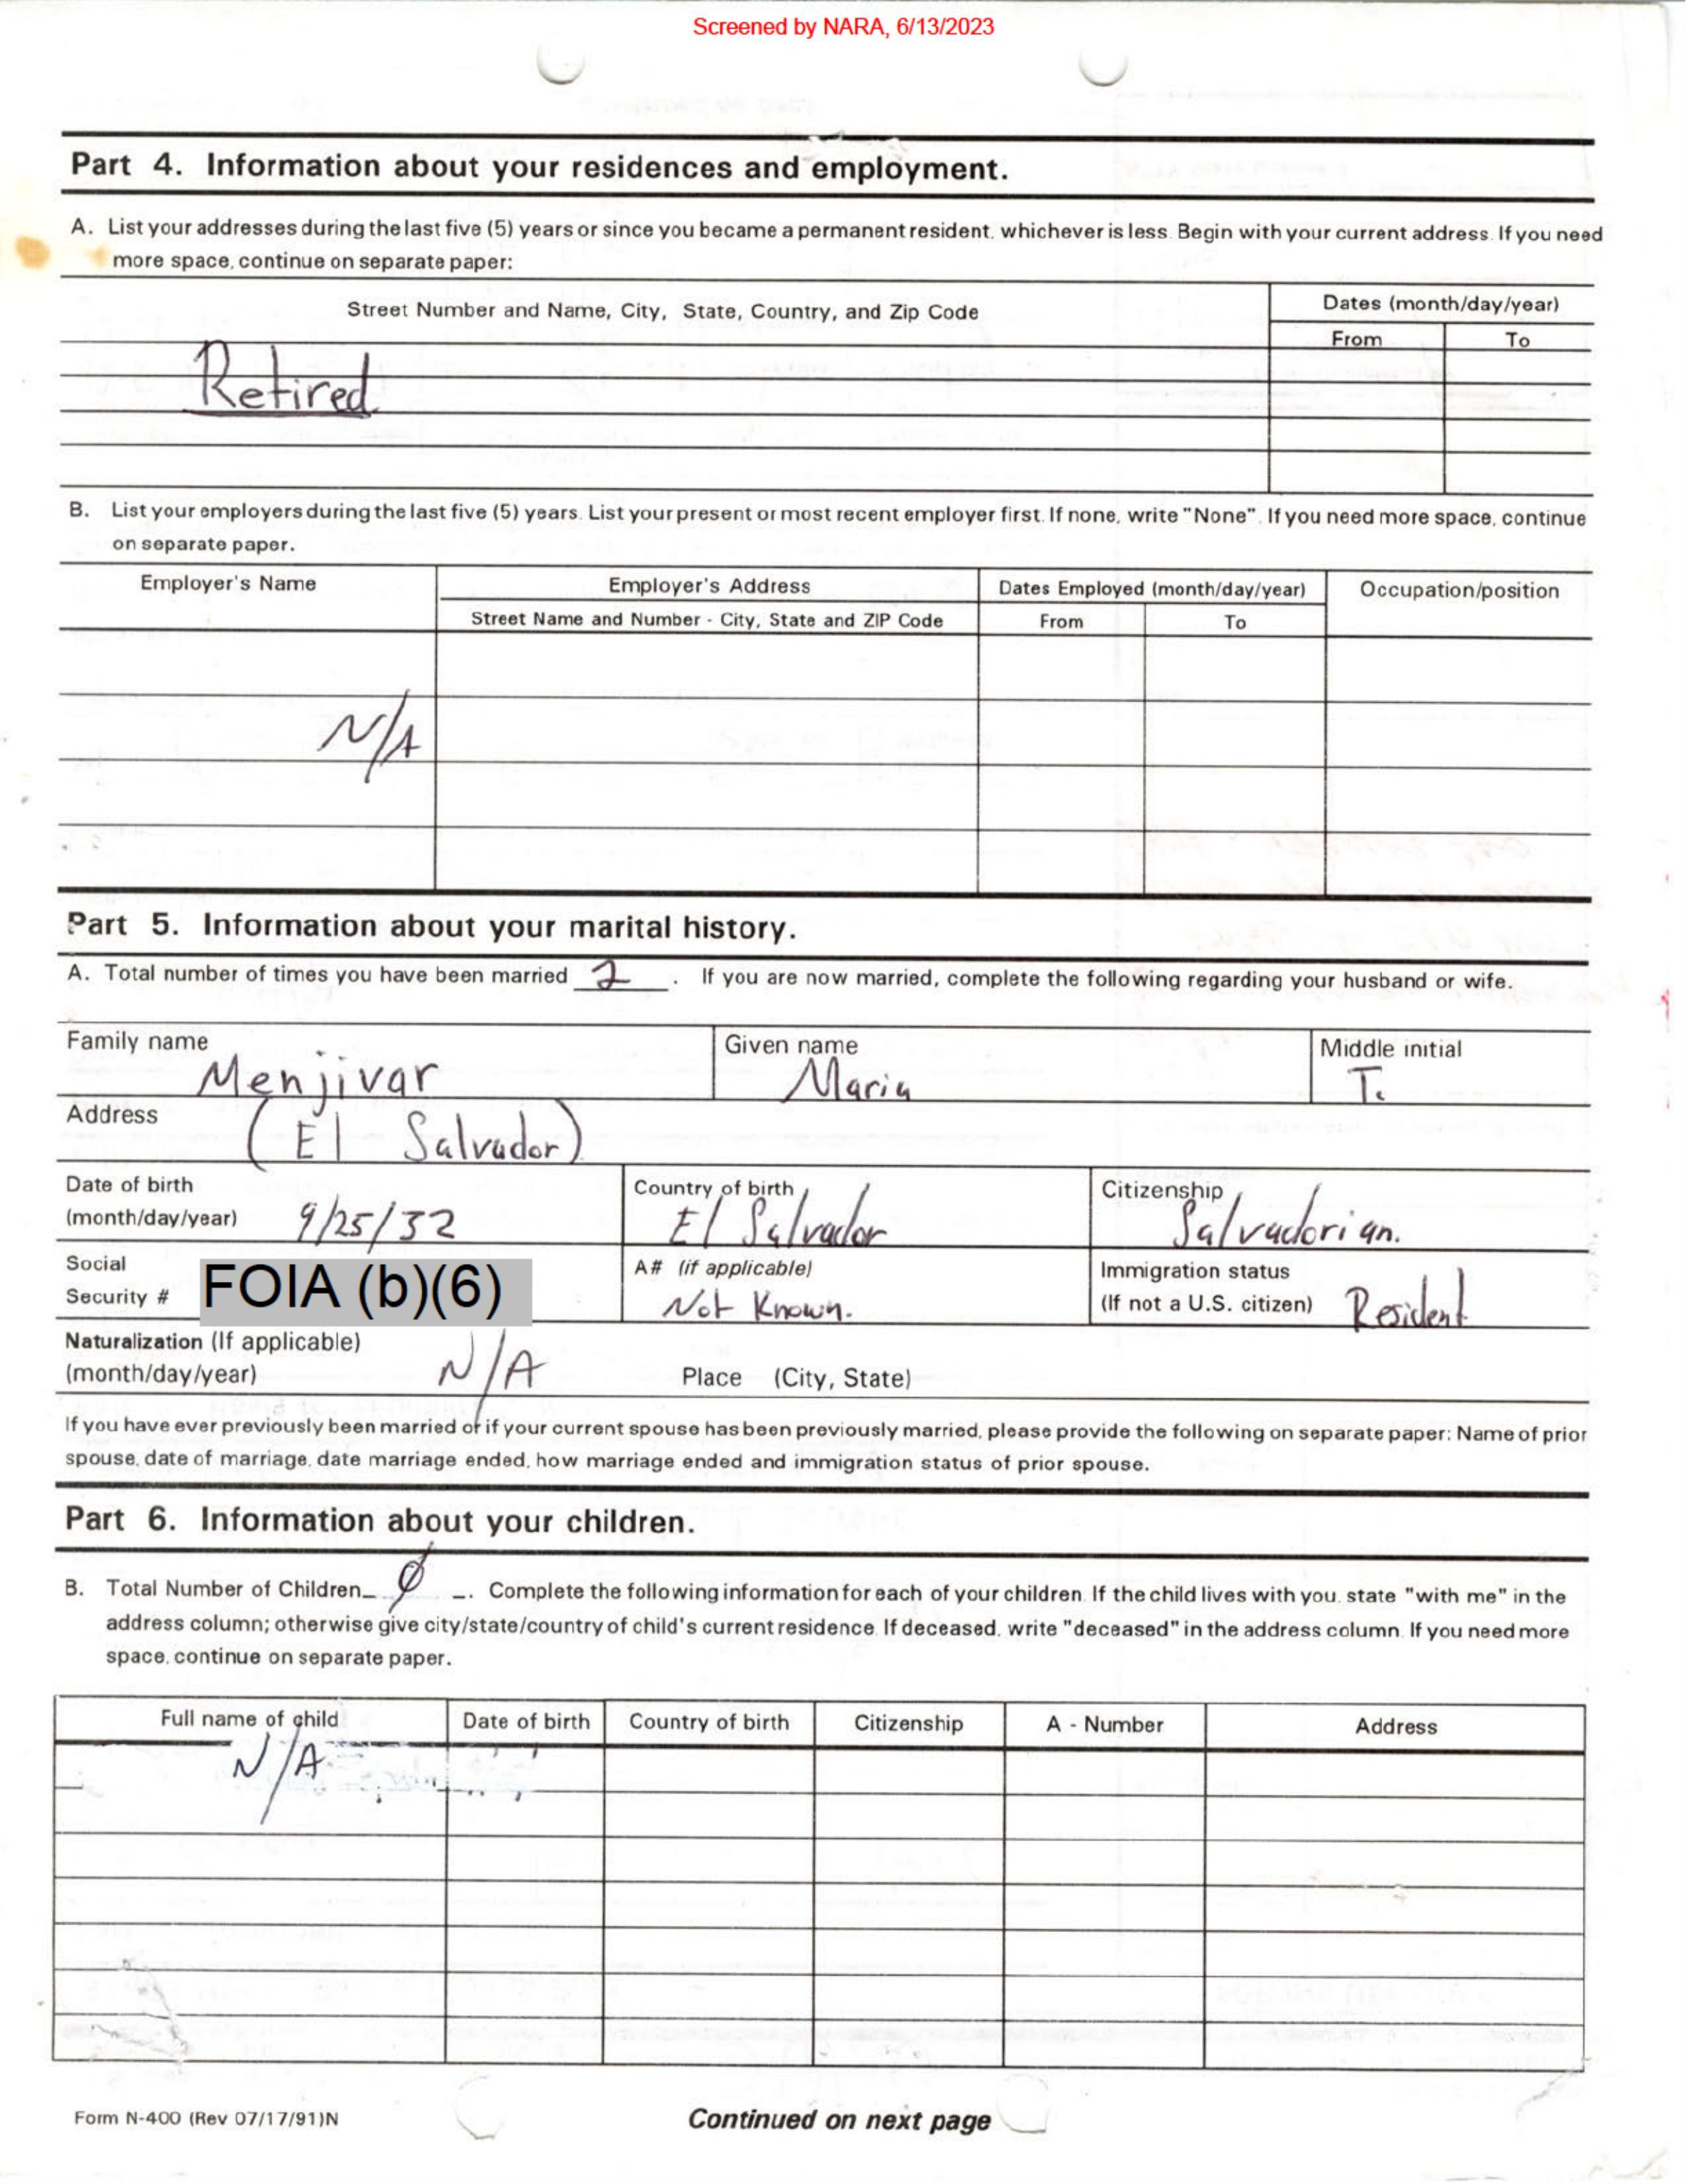 Screened by NARA, 6/13/2023
Part 4. Information about your residences and employment.
A. List your addresses during the last five (5) years or since you became a permanent resident, whichever is less. Begin with your current address. If you need
more space, continue on separate paper:
Street Number and Name, City, State, Country, and Zip Code
Dates (month/day/year)
From To
Retired
B. List your employers during the last five (5) years. List your present or most recent employer first. If none, write "None". If you need more space, continue
on separate paper.
Employer's Name Employer's Address Dates Employed (month/day/year) Occupation/position
Street Name and Number - City, State and ZIP Code From To
N/A
Part 5. Information about your marital history.
A. Total number of times you have been married 2. If you are now married, complete the following regarding your husband or wife.
Family name Given name Middle initial
Menjivar Maria T.
Address
(El Salvador)
Date of birth Country of birth Citizenship
(month/day/year) 9/25/32 El Salvador Salvadorian.
Social A# (if applicable) Immigration status
Security # FOIA (b)(6) Not Known. (If not a U.S. citizen) Resident
Naturalization (If applicable)
(month/day/year) N/A Place (City, State)
If you have ever previously been married or if your current spouse has been previously married, please provide the following on separate paper: Name of prior
spouse, date of marriage, date marriage ended, how marriage ended and immigration status of prior spouse.
Part 6. Information about your children.
B. Total Number of Children Ø. Complete the following information for each of your children. If the child lives with you, state "with me" in the
address column; otherwise give city/state/country of child's current residence. If deceased, write "deceased" in the address column. If you need more
space, continue on separate paper.
Full name of child Date of birth Country of birth Citizenship A - Number Address
N/A
Form N-400 (Rev 07/17/91)N Continued on next page